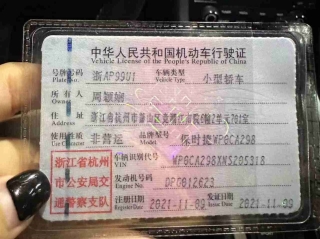 中华人民共和国机动车行驶证
Vehicle License of the People's Republic of China
号牌号码 浙AP99U1 车辆类型 小型轿车
Plate No. Vehicle Type
所有人 周颖娴
Owner
住址 浙江省杭州市萧山区
Address
使用性质 非营运 品牌型号 保时捷WP0CA298
Use Character Model
浙江省杭州
市公安局交
通警察支队
车辆识别代号 WP0CA298XNS205318
VIN
发动机号码 DPG012623
Engine No.
注册日期 2021-11-09 发证日期 2021-11-09
Register Date Issue Date